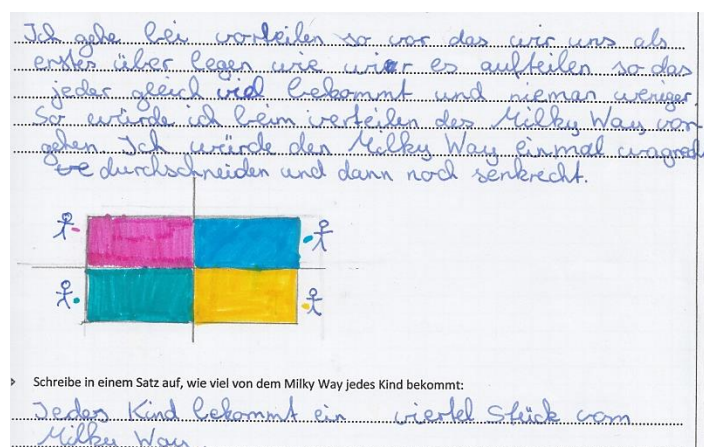 Ich gehe bei vorteilen so vor das wir uns als
erstes über legen wie wir es aufteilen so das
jeder gleich viel bekommt und nieman weniger.
So würde ich beim verteilen des Milky Way vor
gehen. Ich würde den Milky Way einmal wagrech
te durchschneiden und dann noch senkrecht.
Schreibe in einem Satz auf, wie viel von dem Milky Way jedes Kind bekommt:
Jedes Kind bekommt ein viertel Stück vom
Milky Way.